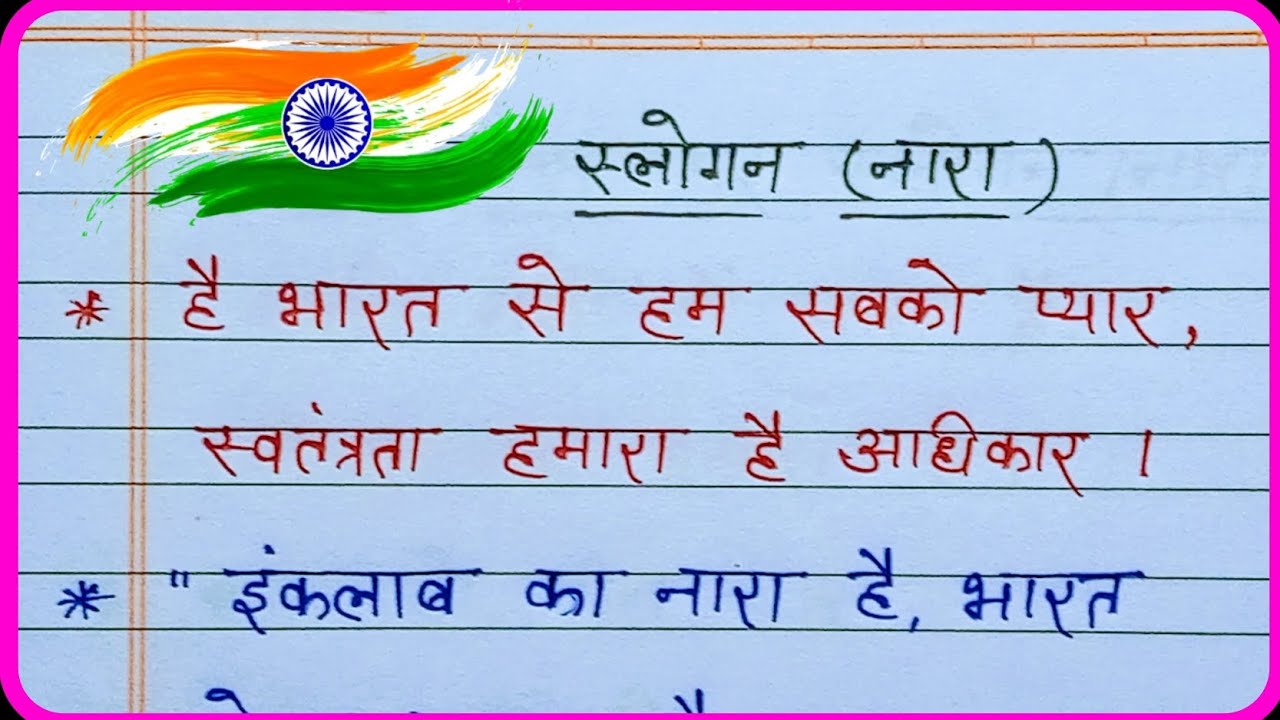 स्लोगन (नारा)
* है भारत से हम सबको प्यार,
स्वतंत्रता हमारा है अधिकार ।
* " इंकलाब का नारा है, भारत